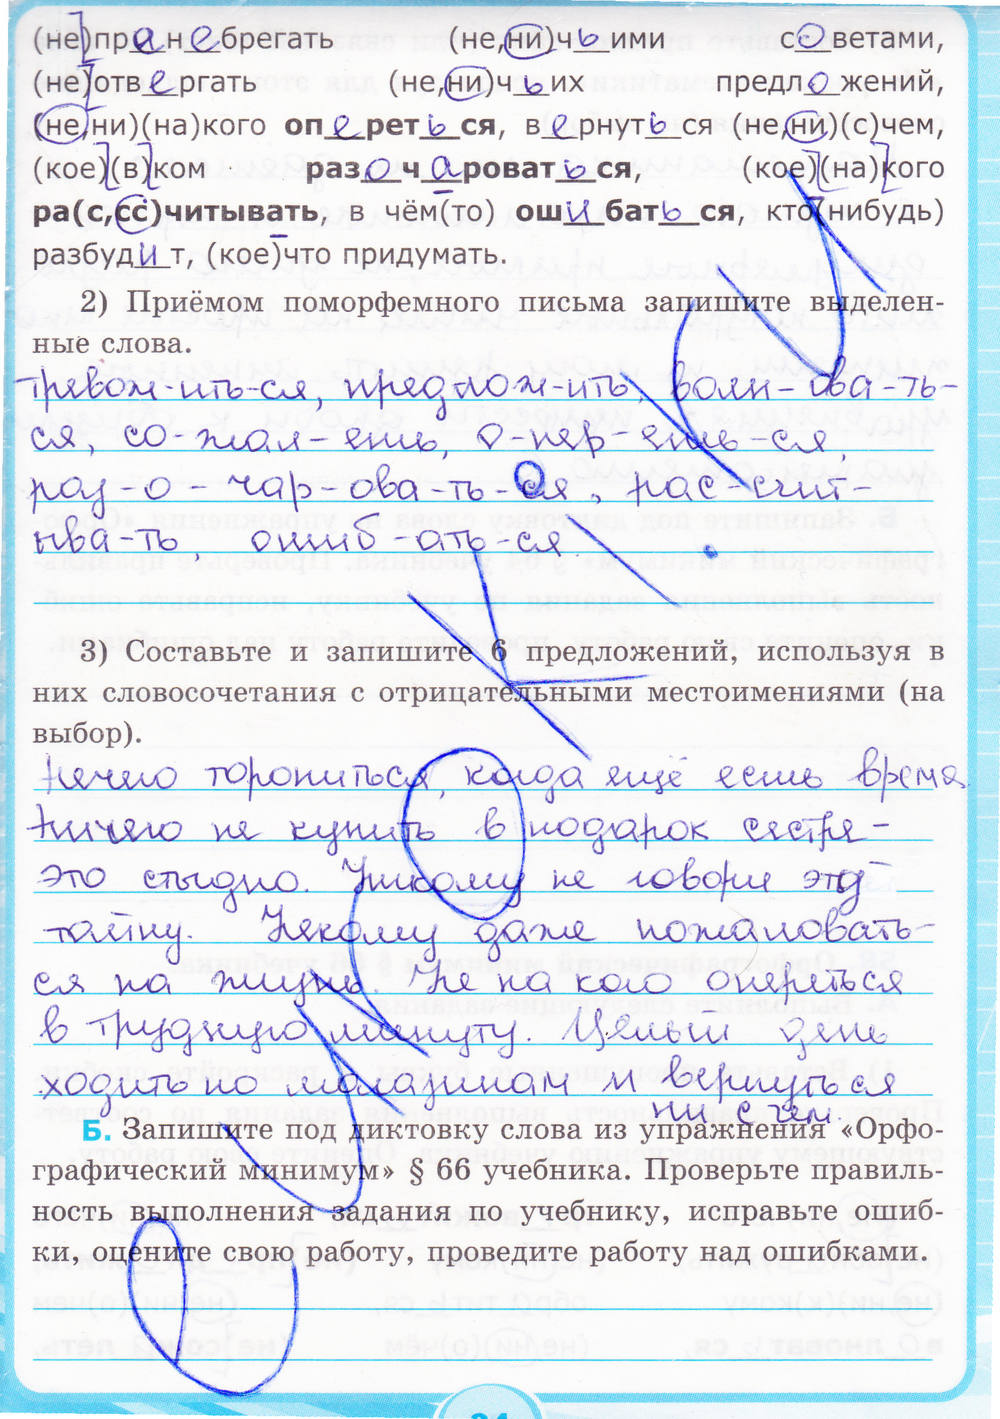 (не)пренебрегать (не,ни)чьими советами,
(не)отвергать (не,ни)чьих предложений,
(не,ни)(на)кого опереться, вернуться (не,ни)(с)чем,
(кое)(в)ком разочароваться, (кое)(на)кого
ра(с,сс)читывать, в чём(то) ошибаться, кто(нибудь)
разбудит, (кое)что придумать.
2) Приёмом поморфемного письма запишите выделен-
ные слова.
тревож-ить-ся, предлож-ить, волн-ова-ть-
ся, со-жал-еть, о-пер-еть-ся,
раз-о-чар-ова-ть-ся, рас-счит-
ыва-ть, ошиб-ать-ся
3) Составьте и запишите 6 предложений, используя в
них словосочетания с отрицательными местоимениями (на
выбор).
Нечего торопиться, когда ещё есть время.
Ничего не купить в подарок сестре-
это стыдно. Никому не говори эту
тайну. Некому даже пожаловать-
ся на жизнь. Не на кого опереться
в трудную минуту. Целый день
ходить по магазинам и вернуться
ни с чем.
Б. Запишите под диктовку слова из упражнения «Орфо-
графический минимум» § 66 учебника. Проверьте правиль-
ность выполнения задания по учебнику, исправьте ошиб-
ки, оцените свою работу, проведите работу над ошибками.